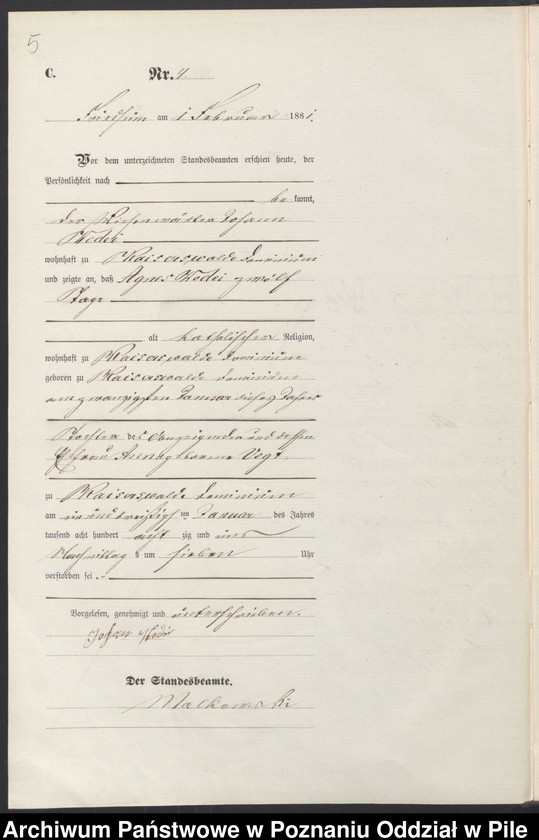 5
C.
Nr. 4
Friedheim am 1 Februar 1881.
Vor dem unterzeichneten Standesbeamten erschien heute, der
Persönlichkeit nach
be kannt,
der Johann
wohnhaft zu Kaiserswalde Dominium
und zeigte an, daß Agnes zwölf
Tage
alt katholischer Religion,
wohnhaft zu Kaiserswalde Dominium
geboren zu Kaiserswalde Dominium
am zwanzigsten Januar dieses Jahres
Tochter des Anzeigenden und dessen
Ehefrau Anna geborene
zu Kaiserswalde Dominium
am ein und dreißigsten Januar des Jahres
tausend acht hundert acht zig und eins
Nachmittag s um sieben Uhr
verstorben sei.
Vorgelesen, genehmigt und unterschrieben.
Johan
Der Standesbeamte.
Malkowski
Archiwum Państwowe w Poznaniu Oddział w Pile